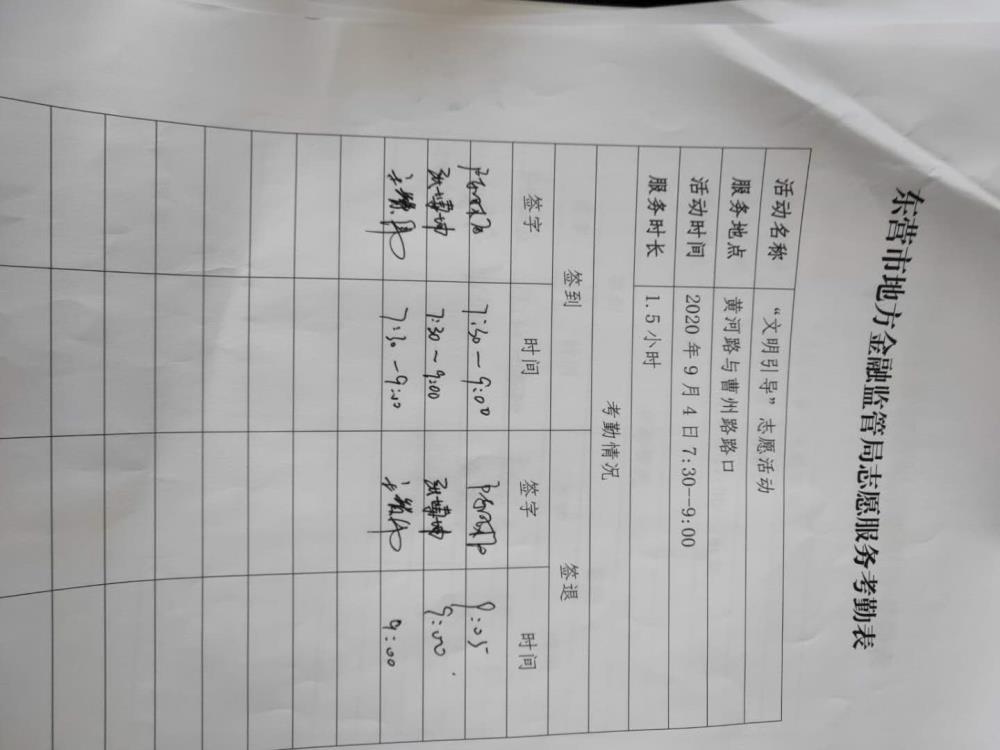 东营市地方金融监管局志愿服务考勤表
活动名称 “文明引导”志愿活动
服务地点 黄河路与曹州路路口
活动时间 2020年9月4日7:30--9:00
服务时长 1.5小时
考勤情况
签到 签退
签字 时间 签字 时间
7:30-9:00 9:05
张博坤 7:30~9:00 张博坤 9:00
7:30-9:00 9:00